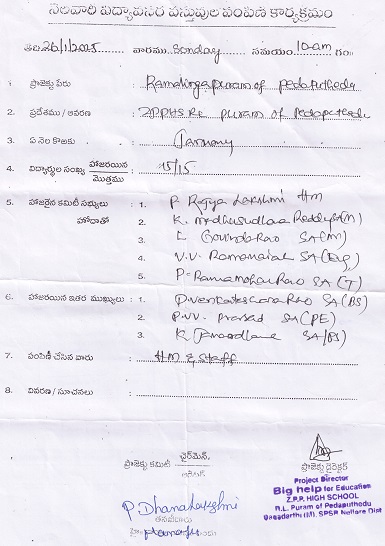 నెలవారి విద్యావసర వస్తువుల పంపిణి కార్యక్రమం
తేది 26/1/2025 వారము sonday సమయం 10-am గం॥
1 ప్రాజెక్టు పేరు : Ramalingapuram of pedaputhedu
2. ప్రదేశము / ఆవరణ : ZPPHS RL puram of Pedaputhedu
3. ఏ నెల కొఱకు : January
4. విద్యార్థుల సంఖ్య హాజరయిన : 15/15
మొత్తము
5. హాజరైన కమిటీ సభ్యులు : 1. P. Rajya Lakshmi HM
హోదాతో 2. K. Madhusudhana Reddy SA(M)
3. L Govinda Rao SA(M)
4. V.V. Ramanaiah SA(Eng)
5. P. Rama Mohan Rao SA(T)
6. హాజరయిన ఇతర ముఖ్యులు : 1. D. Venkateshwara Rao SA(BS)
2. P.VV. Prasad SA(PE)
3. K SA/BS)
7. పంపిణీ చేసిన వారు : HM & Staff
8. వివరణ / సూచనలు :
ప్రాజెక్టు కమిటీ చైర్‌మెన్.
ప్రాజెక్టు డైరెక్టర్
P. Dhanalakshmi
Project Director
Big help for Education
Z.P.P. HIGH SCHOOL
R.L. Puram of Pedaputhodu
Dagadarthi (M), SPSR Nellore Dist